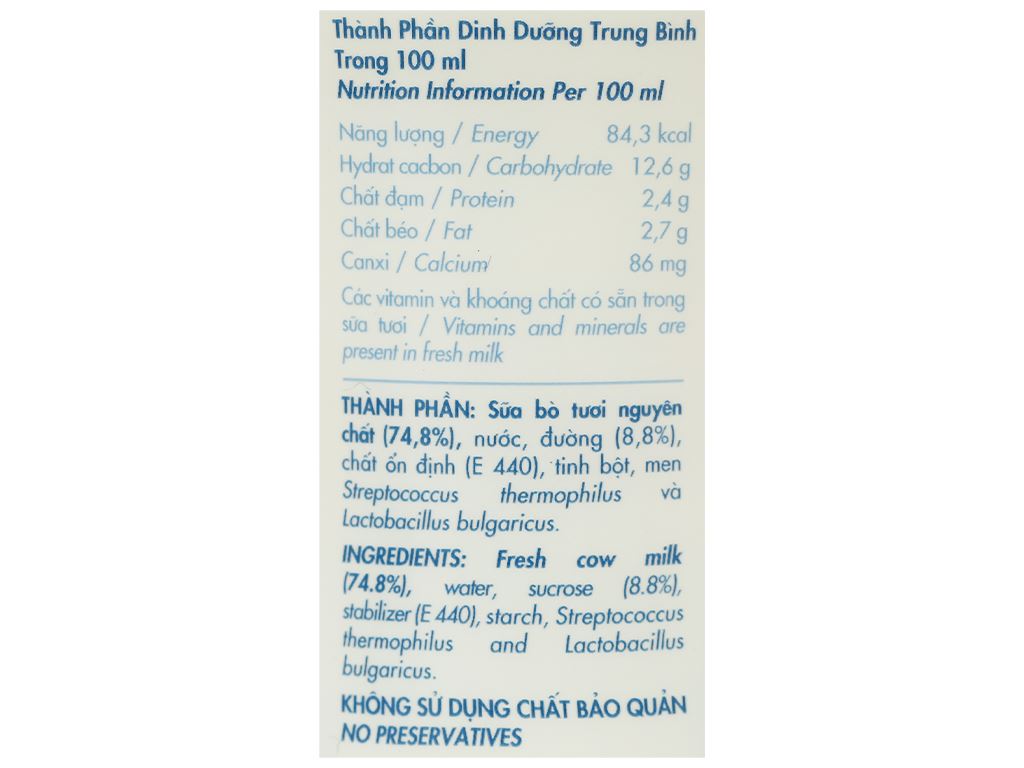 Thành Phần Dinh Dưỡng Trung Bình
Trong 100 ml
Nutrition Information Per 100 ml
Năng lượng / Energy 84,3 kcal
Hydrat cacbon / Carbohydrate 12,6 g
Chất đạm / Protein 2,4 g
Chất béo / Fat 2,7 g
Canxi / Calcium 86 mg
Các vitamin và khoáng chất có sẵn trong
sữa tươi / Vitamins and minerals are
present in fresh milk
THÀNH PHẦN: Sữa bò tươi nguyên
chất (74,8%), nước, đường (8,8%),
chất ổn định (E 440), tinh bột, men
Streptococcus thermophilus và
Lactobacillus bulgaricus.
INGREDIENTS: Fresh cow milk
(74.8%), water, sucrose (8.8%),
stabilizer (E 440), starch, Streptococcus
thermophilus and Lactobacillus
bulgaricus.
KHÔNG SỬ DỤNG CHẤT BẢO QUẢN
NO PRESERVATIVES